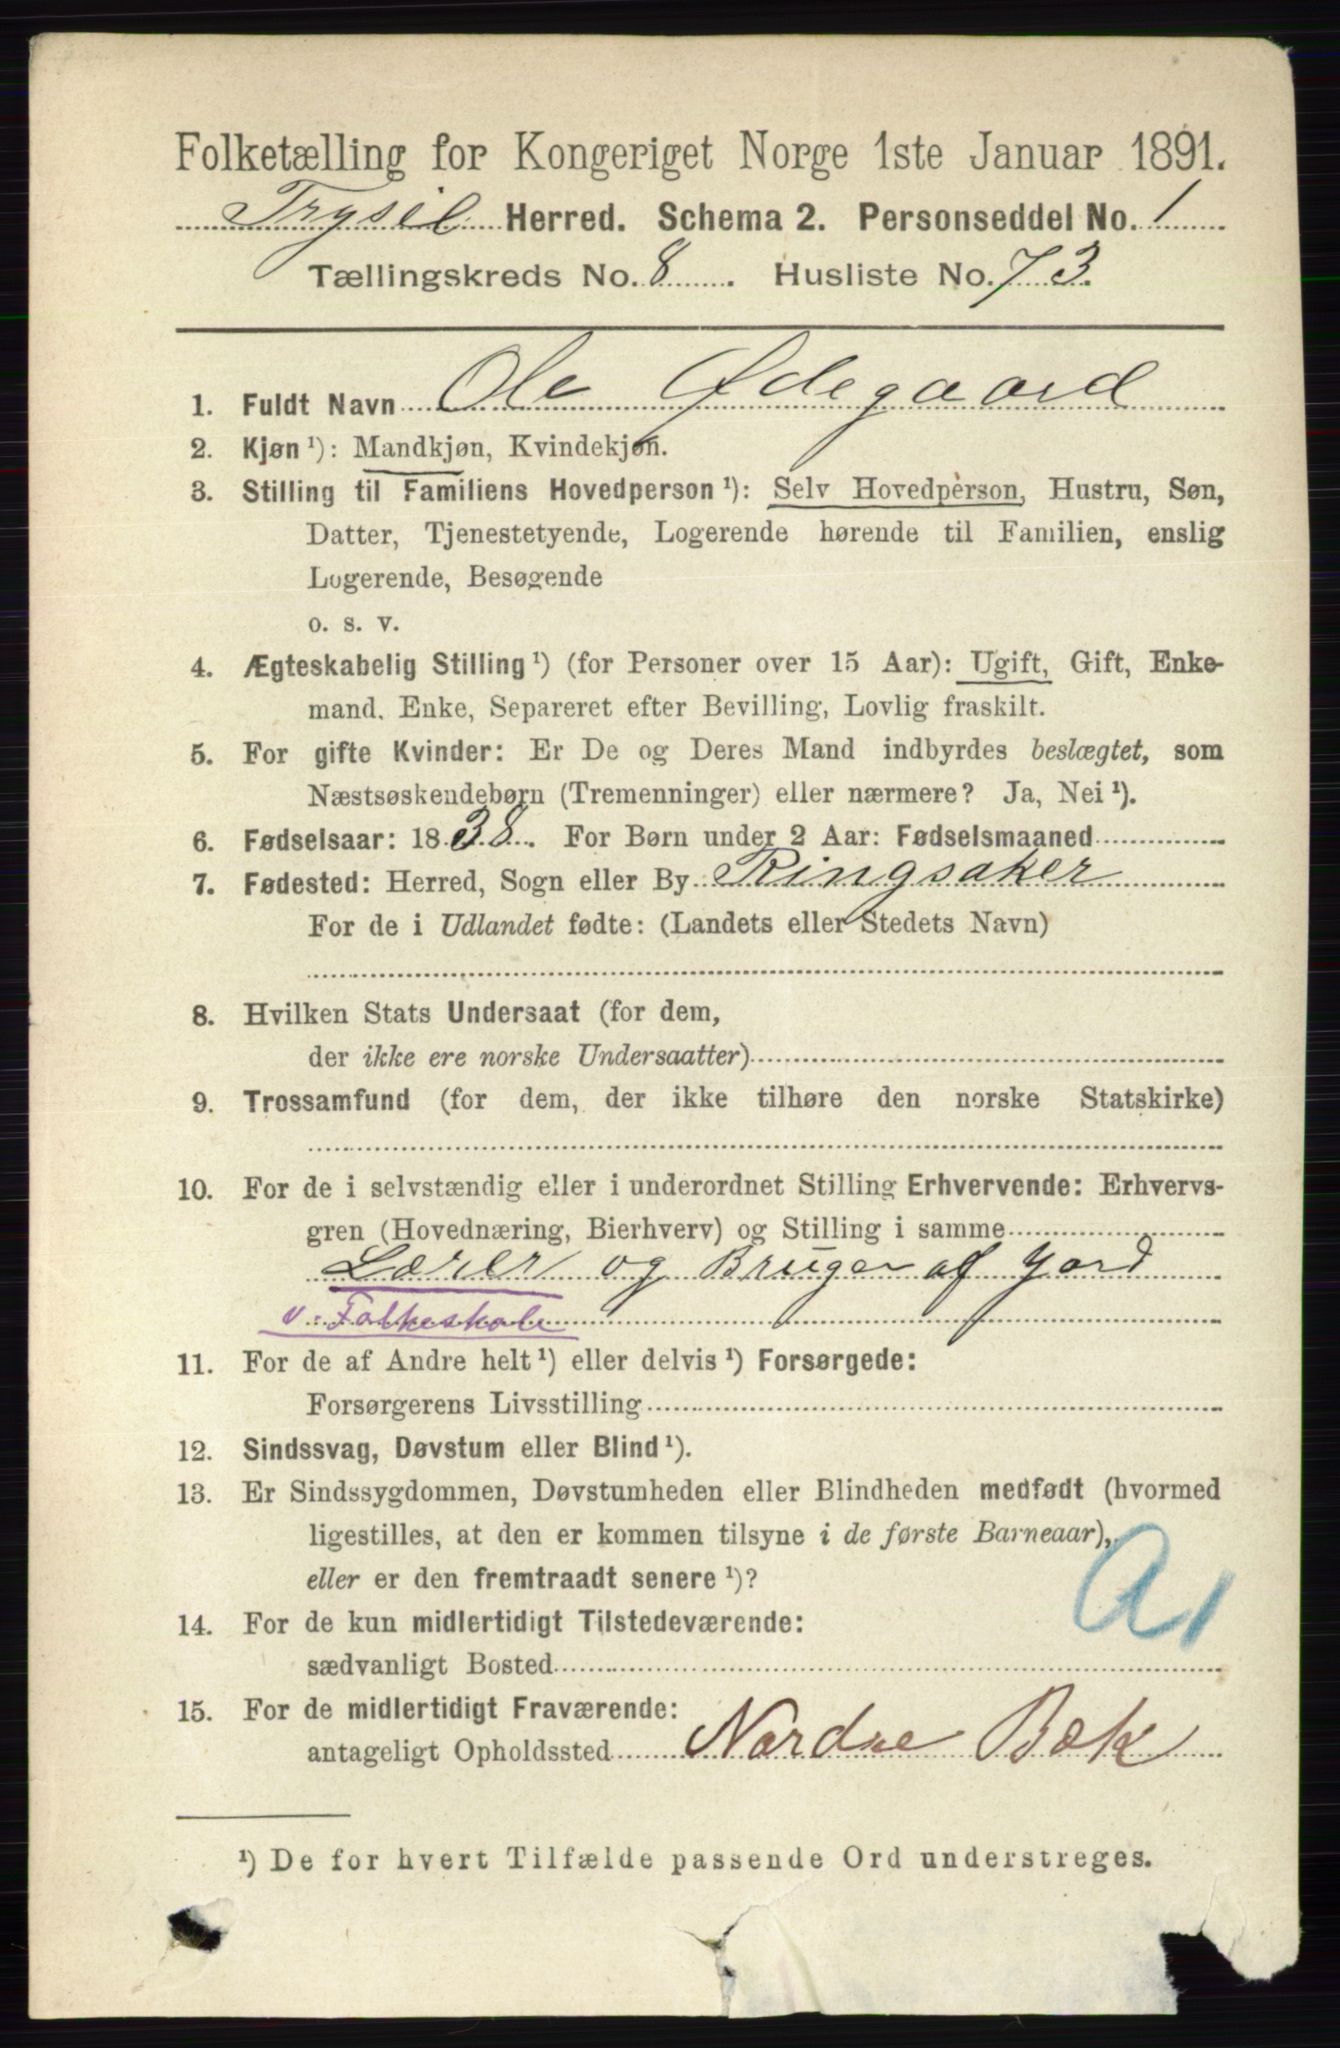 Folketælling for Kongeriget Norge 1ste Januar 1891.
Trysil Herred. Schema 2. Personseddel No. 1
Tællingskreds No. 8. Husliste No. 73.
1. Fuldt Navn Ole Ødegaard
2. Kjøn ¹): Mandkjøn, Kvindekjøn.
3. Stilling til Familiens Hovedperson ¹): Selv Hovedperson, Hustru, Søn,
Datter, Tjenestetyende, Logerende hørende til Familien, enslig
Logerende, Besøgende
o. s. v.
4. Ægteskabelig Stilling ¹) (for Personer over 15 Aar): Ugift, Gift, Enke-
mand, Enke, Separeret efter Bevilling, Lovlig fraskilt.
5. For gifte Kvinder: Er De og Deres Mand indbyrdes beslægtet, som
Næstsøskendebørn (Tremenninger) eller nærmere? Ja, Nei ¹).
6. Fødselsaar: 1838. For Børn under 2 Aar: Fødselsmaaned
7. Fødested: Herred, Sogn eller By Ringsaker
For de i Udlandet fødte: (Landets eller Stedets Navn)
8. Hvilken Stats Undersaat (for dem,
der ikke ere norske Undersaatter)
9. Trossamfund (for dem, der ikke tilhøre den norske Statskirke)
10. For de i selvstændig eller i underordnet Stilling Erhvervende: Erhvervs-
gren (Hovednæring, Bierhverv) og Stilling i samme
Lærer og Bruger af Jord
v. Folkeskole
11. For de af Andre helt ¹) eller delvis ¹) Forsørgede:
Forsørgerens Livsstilling
12. Sindssvag, Døvstum eller Blind ¹).
13. Er Sindssygdommen, Døvstumheden eller Blindheden medfødt (hvormed
ligestilles, at den er kommen tilsyne i de første Barneaar),
eller er den fremtraadt senere ¹)?
A1
14. For de kun midlertidigt Tilstedeværende:
sædvanligt Bosted
15. For de midlertidigt Fraværende:
antageligt Opholdssted Nordre Bæk
¹) De for hvert Tilfælde passende Ord understreges.